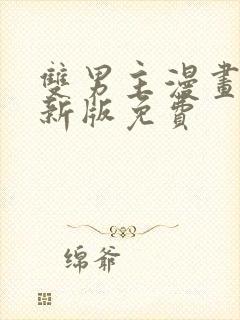 雙男主漫畫
新版免費
绵爷